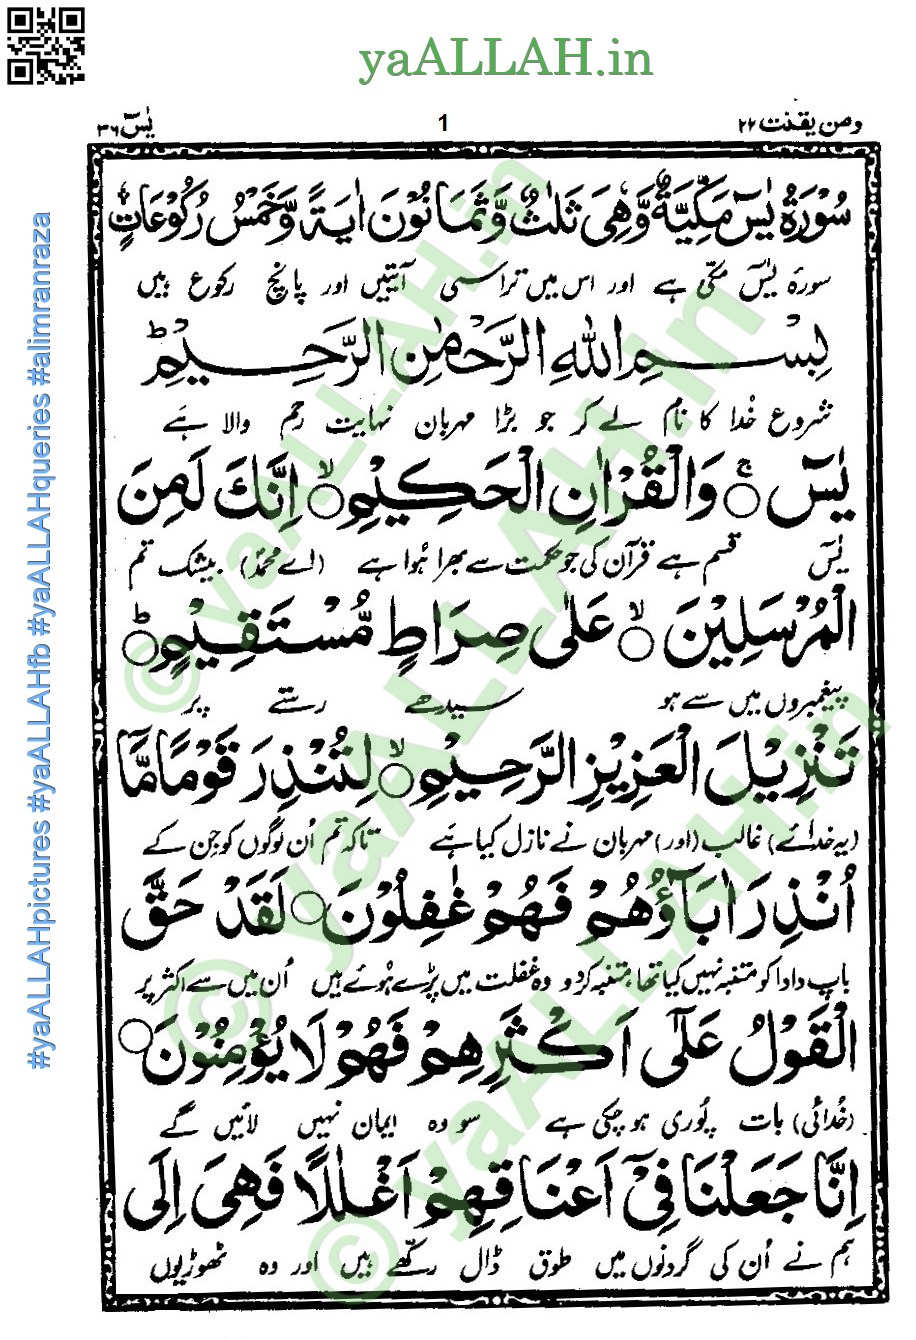 yaALLAH.in
ومن یقنت ۲۲
1
یٰسٓ ۳۶
سُوْرَةُ يٰسٓ مَكِّيَّةٌ وَّهِيَ ثَلٰثٌ وَّثَمَانُوْنَ اٰيَةً وَّخَمْسُ رُكُوْعَاتٍ
سورۂ یٰسٓ مکّی ہے اور اس میں تراسی آیتیں اور پانچ رکوع ہیں
بِسْمِ اللّٰهِ الرَّحْمٰنِ الرَّحِيْمِ ؕ
شروع خُدا کا نام لے کر جو بڑا مہربان نہایت رحم والا ہَے
يٰسٓ ۚ○ وَالْقُرْاٰنِ الْحَكِيْمِ ۙ○ اِنَّكَ لَمِنَ
یٰسٓ قسم ہے قرآن کی جو حکمت سے بھرا ہُوا ہے (اے محمدؐ) بیشک تم
الْمُرْسَلِيْنَ ۙ○ عَلٰى صِرَاطٍ مُّسْتَقِيْمٍ ؕ○
پیغمبروں میں سے ہو سیدھے رستے پر
تَنْزِيْلَ الْعَزِيْزِ الرَّحِيْمِ ۙ○ لِتُنْذِرَ قَوْمًا مَّآ
(یہ خدائے) غالب (اور) مہربان نے نازل کیا ہَے تاکہ تم اُن لوگوں کو جن کے
اُنْذِرَ اٰبَآؤُهُمْ فَهُمْ غٰفِلُوْنَ ○ لَقَدْ حَقَّ
باپ دادا کو متنبہ نہیں کیا تھا متنبہ کردو وہ غفلت میں پڑے ہُوئے ہیں اُن میں سے اکثر پر
الْقَوْلُ عَلٰٓى اَكْثَرِهِمْ فَهُمْ لَا يُؤْمِنُوْنَ ○
(خُدائی) بات پُوری ہوچکی ہے سو وہ ایمان نہیں لائیں گے
اِنَّا جَعَلْنَا فِيْٓ اَعْنَاقِهِمْ اَغْلٰلًا فَهِيَ اِلَى
ہم نے اُن کی گردنوں میں طوق ڈال رکھّے ہیں اور وہ ٹھوڑیوں
#yaALLAHpictures #yaALLAHfb #yaALLAHqueries #alimranraza
© yaALLAH.in
© yaALLAH.in
© yaALLAH.in